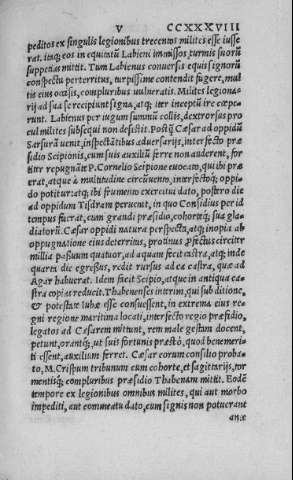 V CCXXXVIII
peditos ex singulis legionibus trecentos milites esse iusse
rat. itaq; eos in equitatũ Labieni immissos, turmis suorũ
suppetias mittit. Tum Labienus conuersis equis signorũ
conspectu perterritus, turpissime contendit fugere, mul
tis eius occisis, compluribus uulneratis. Milites legiona-
rij ad sua se recipiunt signa, atq; iter inceptũ ire cœpe-
runt. Labienus per iugum summũ collis, dextrorsus pro
cul milites subsequi non destitit. Postq̃ Cæsar ad oppidũ
Sarsurã uenit, inspectātibus aduersarijs, interfecto præ
sidio Scipionis, cum suis auxiliũ ferre non auderent, for
titer repugnāte P. Cornelio Scipione euocato, qui ibi præ
erat, atque à multitudine circũuento, interfectoq; oppi-
do potitur: atq; ibi frumento exercitui dato, postero die
ad oppidum Tisdram peruenit, in quo Considius per id
tempus fuerat, cum grandi præsidio, cohorteq; sua gla-
diatorũ. Cæsar oppidi natura perspecta, atq; inopia ab
oppugnatione eius deterritus, protinus profectus circiter
millia passuum quatuor, ad aquam fecit castra, atq; inde
quarto die egressus, redit rursus ad ea castra, quæ ad
Agar habuerat. Idem facit Scipio, atque in antiqua ca-
stra copias reducit. Thabenenses interim, qui sub ditione,
& potestate Iubæ esse consuessent, in extrema eius re-
gni regione maritima locati, interfecto regio præsidio,
legatos ad Cæsarem mittunt, rem male gestam docent,
petunt, orantq;, ut suis fortunis præstò, quod benemeri-
ti essent, auxilium ferret. Cæsar eorum consilio proba-
to, M. Crispum tribunum cum cohorte, et sagittarijs, tor
mentisq; compluribus præsidio Thabenam mittit. Eodẽ
tempore ex legionibus omnibus milites, qui aut morbo
impediti, aut commeatu dato, cum signis non potuerant
antæ